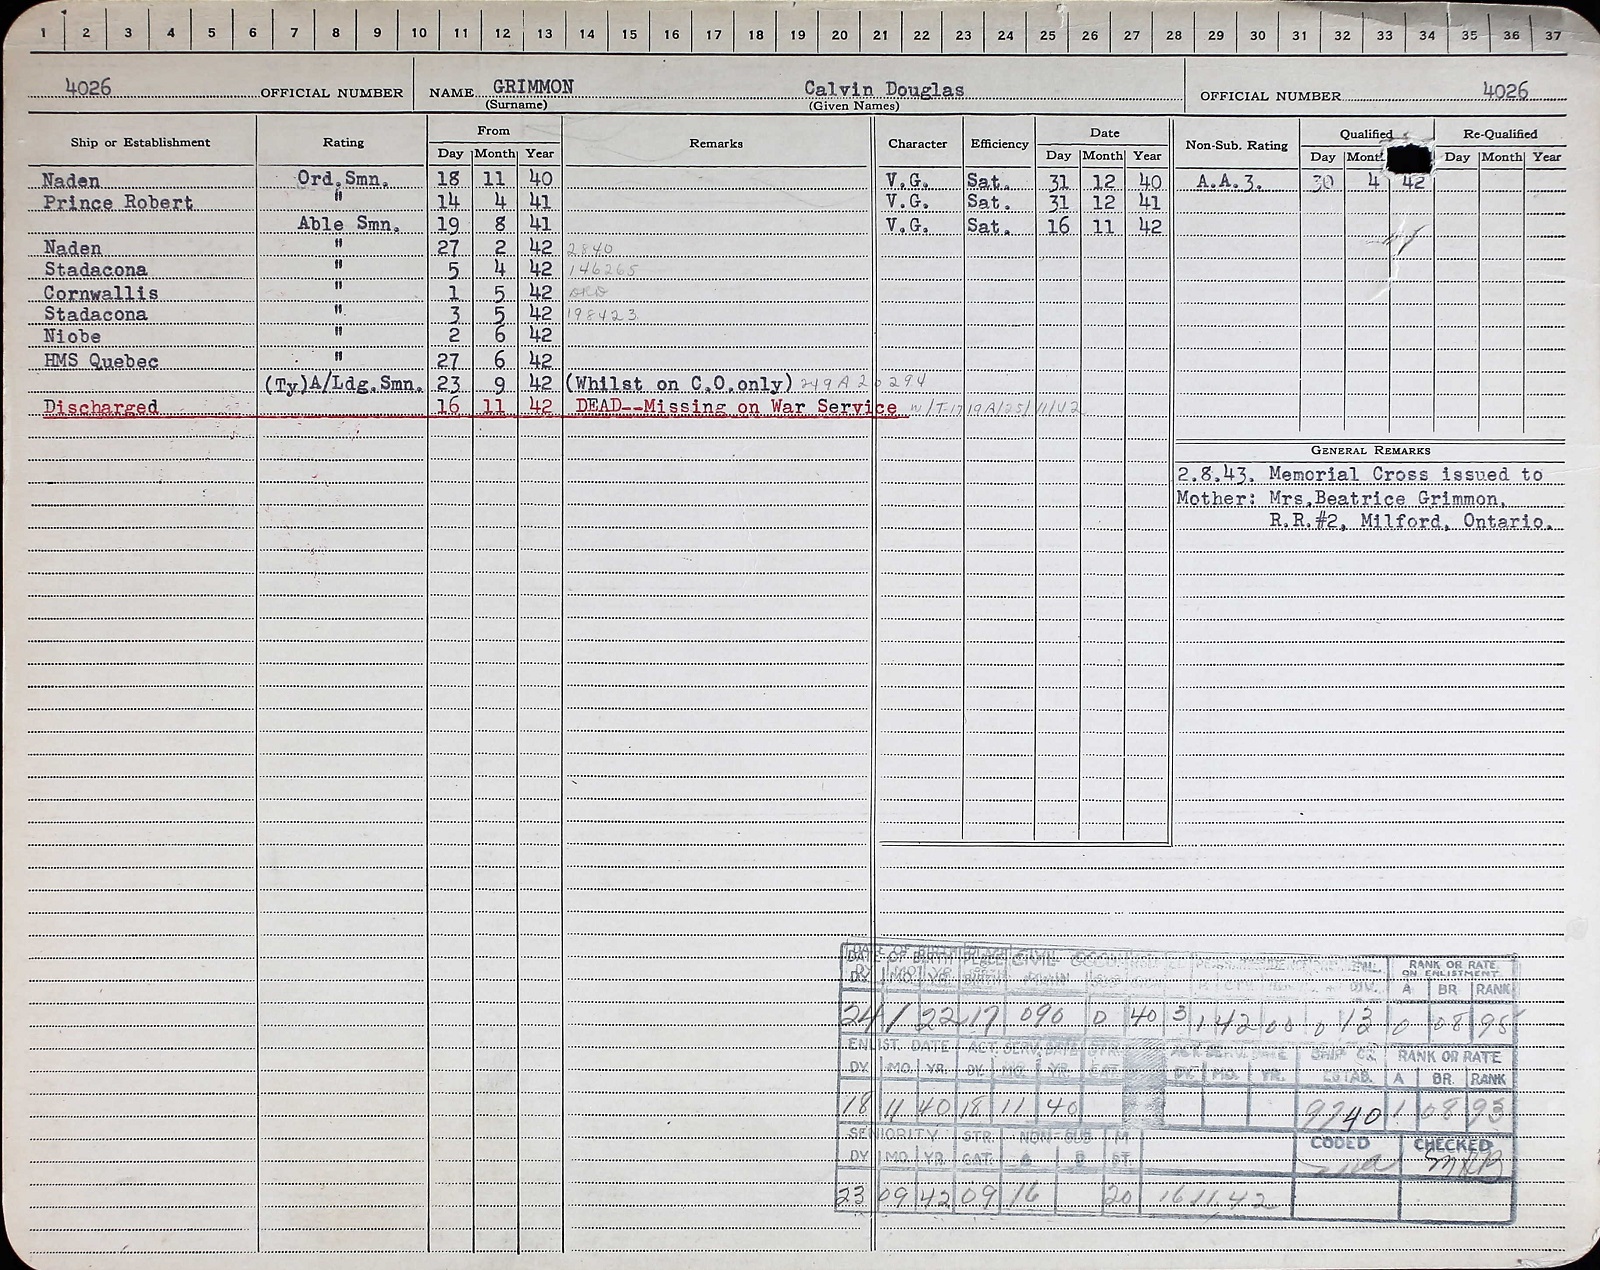 1 2 3 4 5 6 7 8 9 10 11 12 13 14 15 16 17 18 19 20 21 22 23 24 25 26 27 28 29 30 31 32 33 34 35 36 37
4026 OFFICIAL NUMBER NAME GRIMMON Calvin Douglas OFFICIAL NUMBER 4026
(Surname) (Given Names)
Ship or Establishment Rating From Remarks Character Efficiency Date Non-Sub. Rating Qualified Re-Qualified
Day Month Year Day Month Year Day Month Day Month Year
Naden Ord.Smn. 18 11 40 V.G. Sat. 31 12 40 A.A.3. 30 4 42
Prince Robert " 14 4 41 V.G. Sat. 31 12 41
Able Smn. 19 8 41 V.G. Sat. 16 11 42
Naden " 27 2 42 2840
Stadacona " 5 4 42 146265
Cornwallis " 1 5 42
Stadacona " 3 5 42 198423
Niobe " 2 6 42
HMS Quebec " 27 6 42
(Ty)A/Ldg.Smn. 23 9 42 (Whilst on C.O.only)
Discharged 16 11 42 DEAD--Missing on War Service
GENERAL REMARKS
2.8.43. Memorial Cross issued to
Mother: Mrs.Beatrice Grimmon,
R.R.#2, Milford, Ontario.
DATE OF BIRTH PLACE CIVIL RANK OR RATE
ON ENLISTMENT
DIV. A BR. RANK
24 1 22 17 090 0 40 3 142 00 0 13 0 08 95
ENLIST. DATE ACT. SERV. DATE STR. SHIP OR RANK OR RATE
DY. MO. YR. DY. MO. YR. CAT. DY. MO. YR. ESTAB. A BR. RANK
18 11 40 18 11 40 9740 1 08 93
SENIORITY STR. NON-SUB M CODED CHECKED
DY. MO. YR. CAT. A B ST.
23 09 42 09 16 20 16 11 42